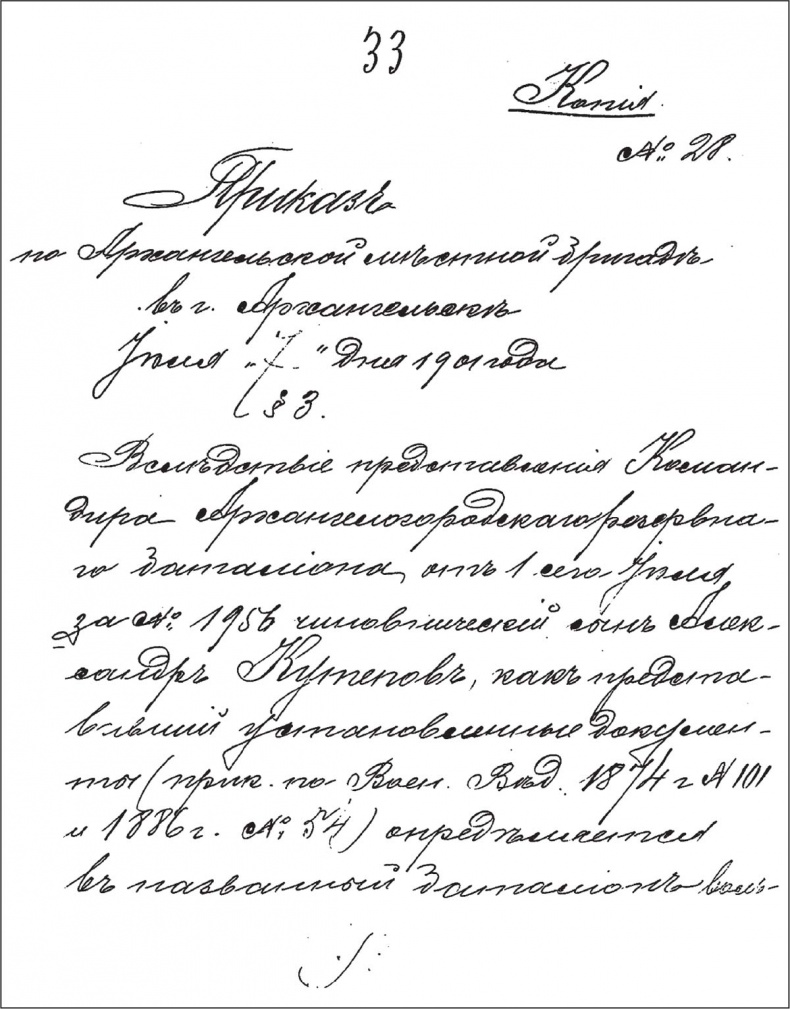 33
Копія.
№ 28.
Приказъ
по Архангельской мѣстной бригадѣ
въ г. Архангельскѣ
Іюля "7" дня 1901 года
§ 3.
Вслѣдствіе представленія Коман-
дира Архангелогородскаго резервна-
го баталіона, отъ 1 сего Іюля
за № 1956 чиновническій сынъ Алек-
сандръ Кутеповъ, какъ предста-
вившій установленные докумен-
ты (прик. по Воен. Вѣд. 1874 г № 101
и 1886 г. № 54) опредѣляется
въ названный баталіонъ воль-